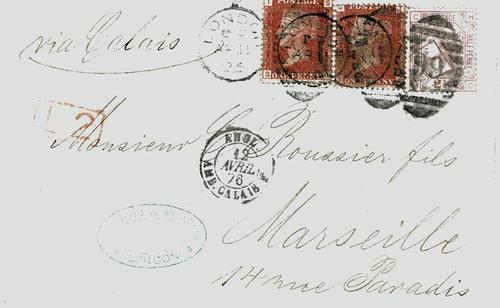 via Calais
LONDON
AP 11
76
POSTAGE
ONE PENNY
ONE PENNY
L 2
Monsieur C Roussier fils
ANGL.
12
AVRIL
76
AMB. CALAIS
Marseille
LONDON
14 rue Paradis